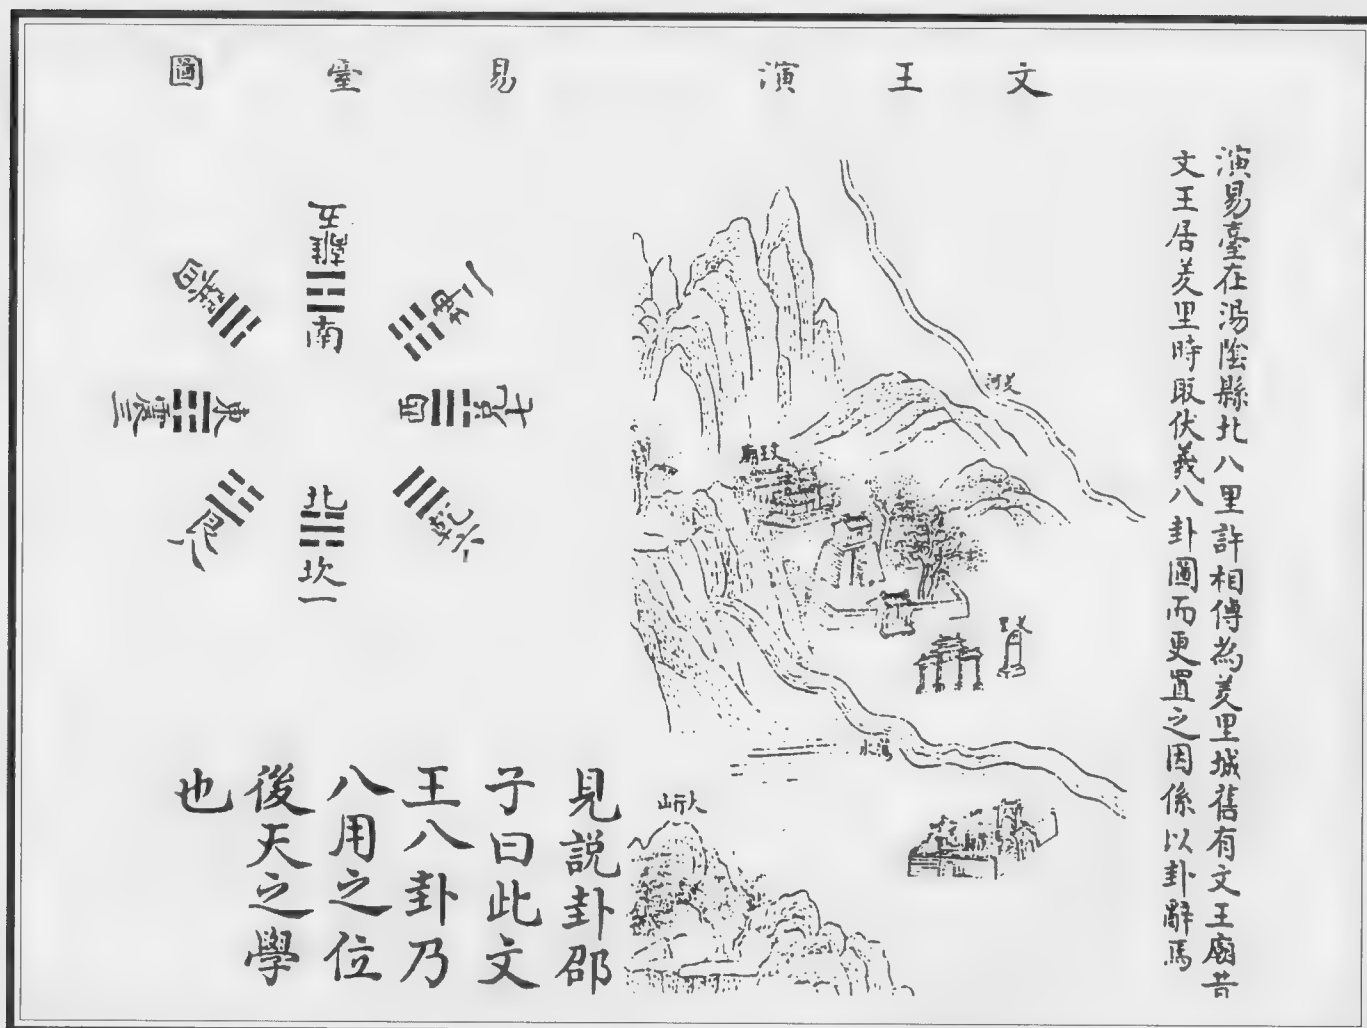 文王演易臺圖
演易臺在湯陰縣北八里許相傳為羑里城舊有文王廟昔
文王居羑里時取伏羲八卦圖而更置之因係以卦辭焉
羑河
文王廟
羑里
湯水
太行山
南
離
坤二
西
兌七
乾六
北
坎一
艮八
東
震三
巽四
見說卦邵
子曰此文
王八卦乃
八用之位
後天之學
也